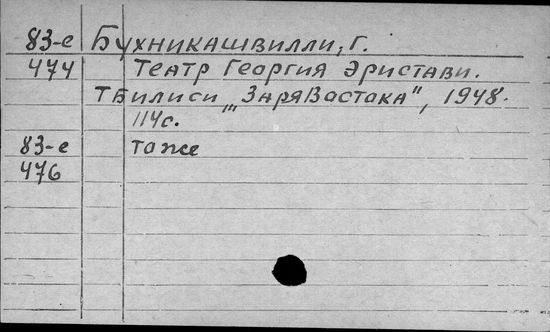 83-е Бухникашвилли, Г.
474 Театр Георгия Эристави.
Тбилиси „Заря Вастока", 1948.
114с.
83-е то же
476